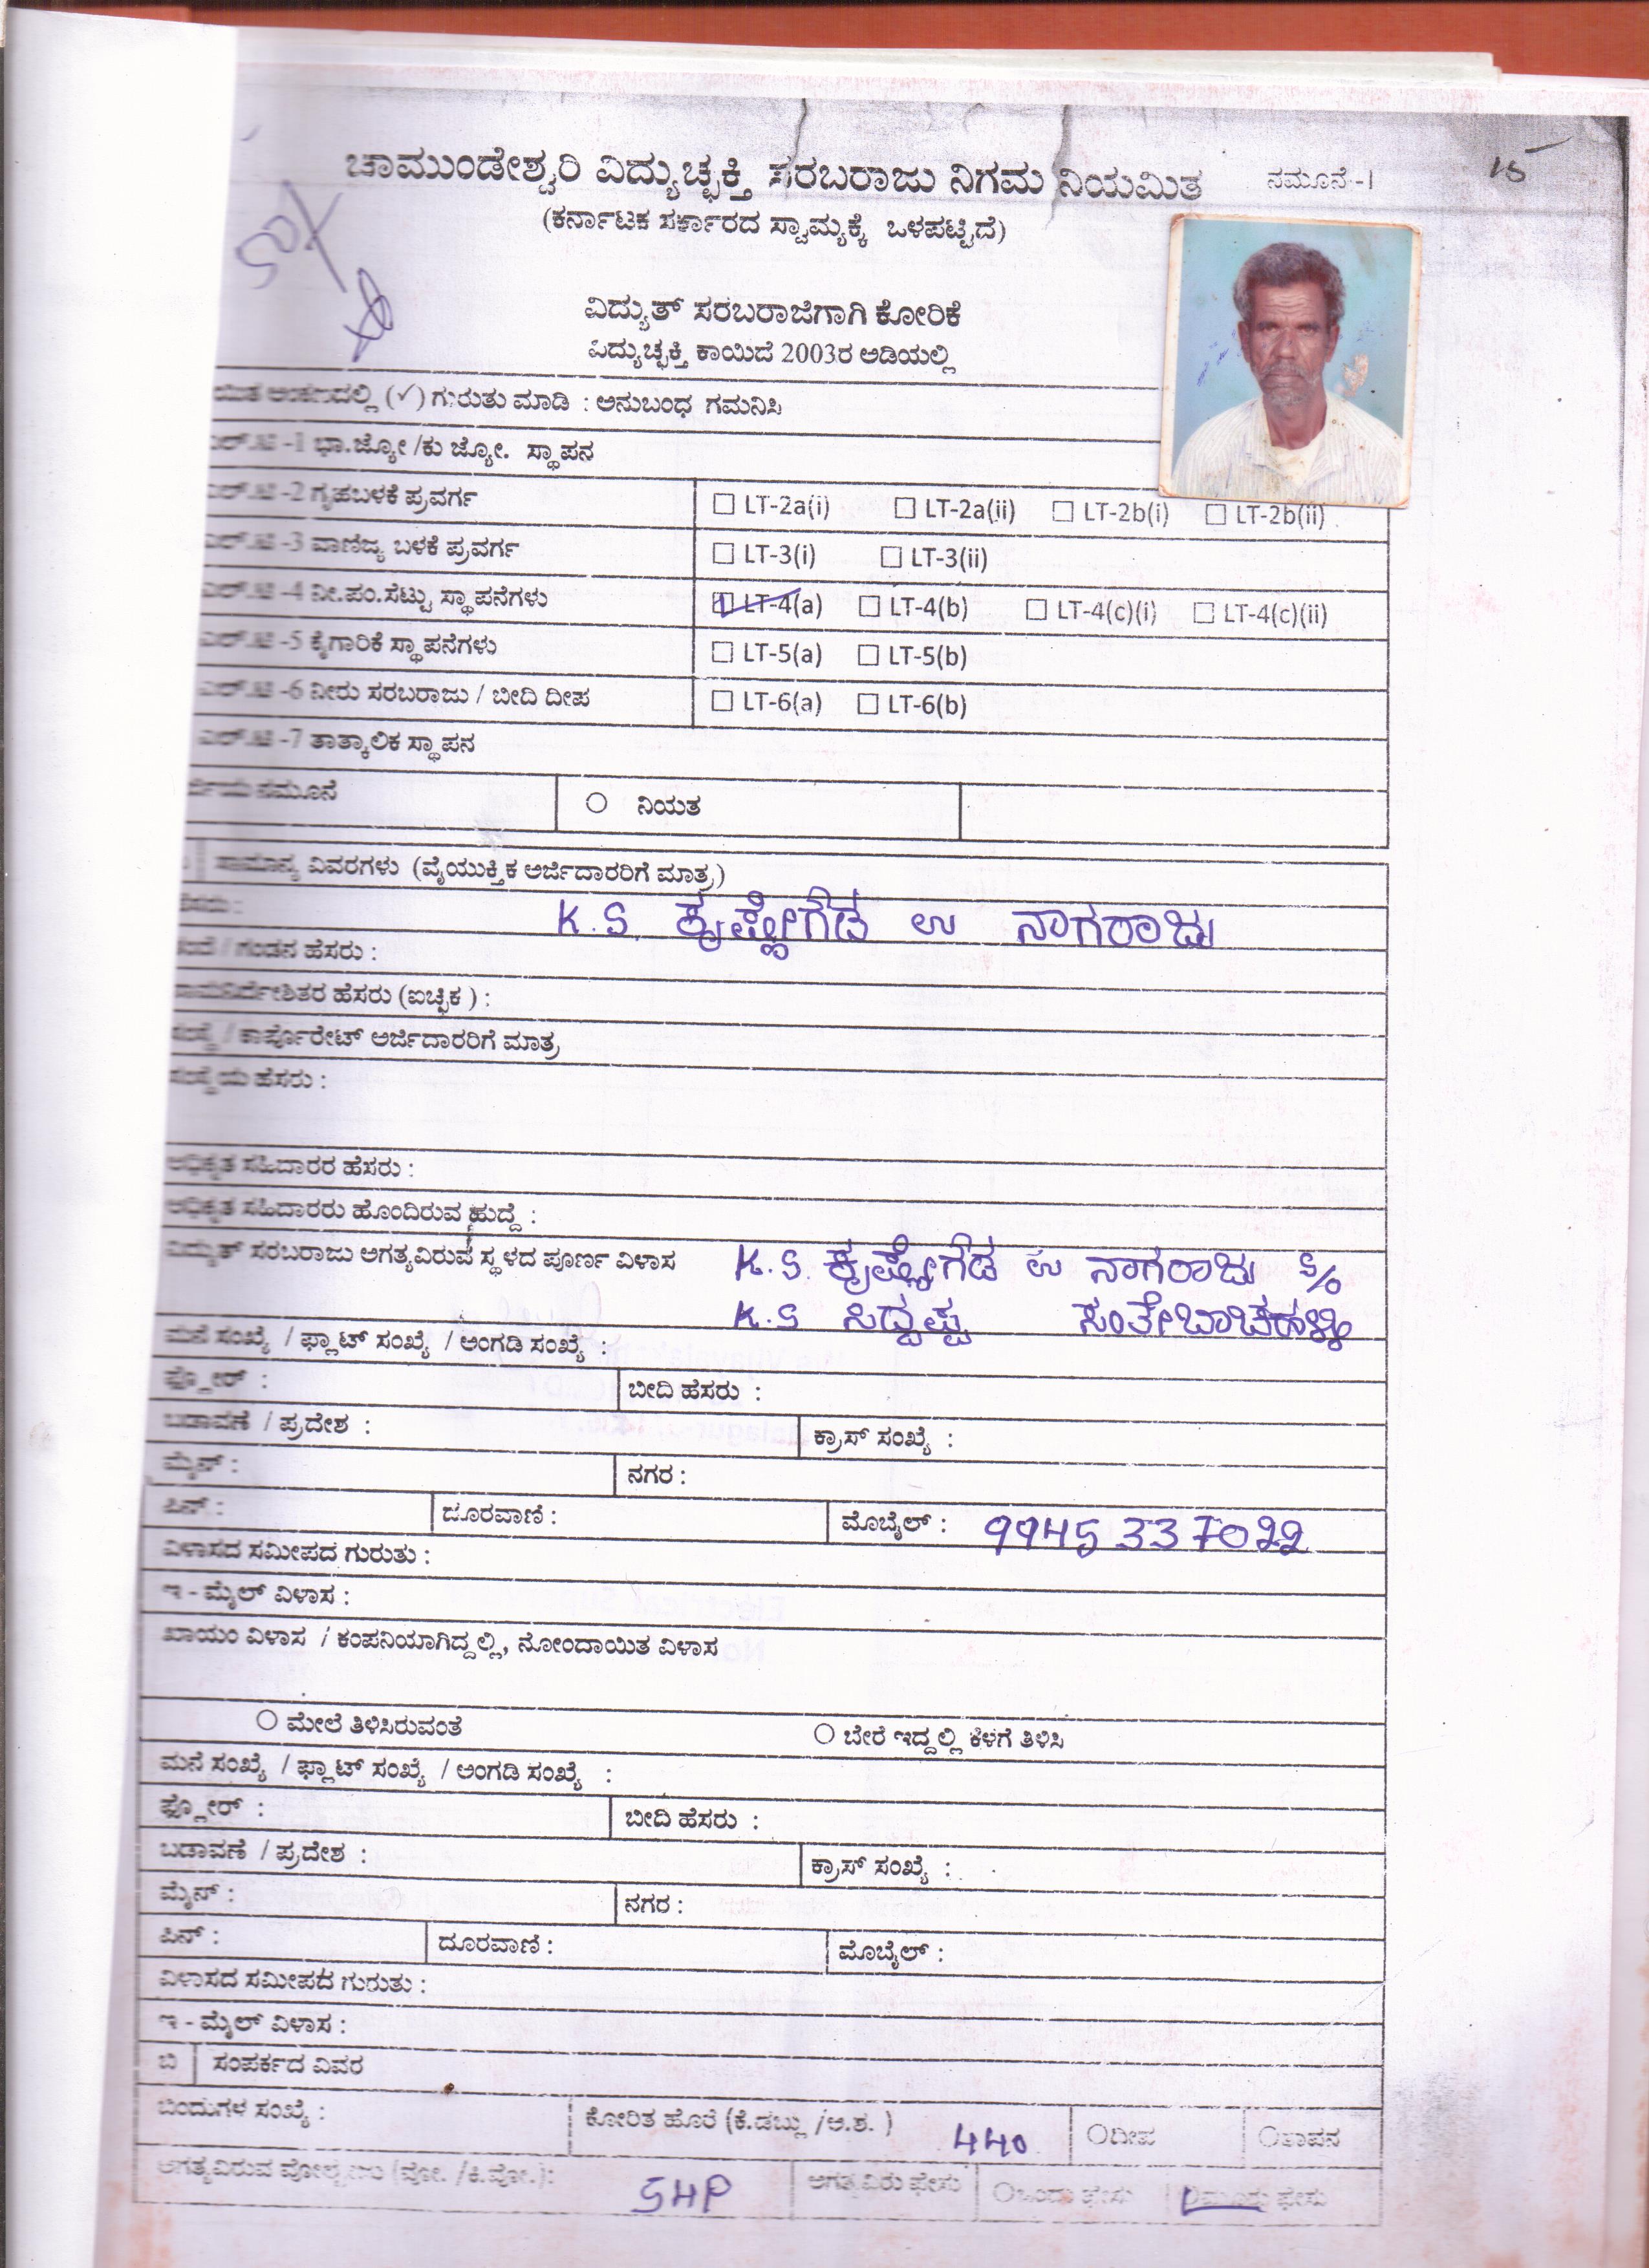 15
ಚಾಮುಂಡೇಶ್ವರಿ ವಿದ್ಯುಚ್ಛಕ್ತಿ ಸರಬರಾಜು ನಿಗಮ ನಿಯಮಿತ ನಮೂನೆ-1
(ಕರ್ನಾಟಕ ಸರ್ಕಾರದ ಸ್ವಾಮ್ಯಕ್ಕೆ ಒಳಪಟ್ಟಿದೆ)
ವಿದ್ಯುತ್ ಸರಬರಾಜಿಗಾಗಿ ಕೋರಿಕೆ
ವಿದ್ಯುಚ್ಛಕ್ತಿ ಕಾಯಿದೆ 2003ರ ಅಡಿಯಲ್ಲಿ
(✓) ಗುರುತು ಮಾಡಿ : ಅನುಬಂಧ ಗಮನಿಸಿ
-1 ಭಾ.ಜ್ಯೋ /ಕು ಜ್ಯೋ. ಸ್ಥಾಪನ
-2 ಗೃಹಬಳಕೆ ಪ್ರವರ್ಗ ☐ LT-2a(i) ☐ LT-2a(ii) ☐ LT-2b(i) ☐ LT-2b(ii)
-3 ವಾಣಿಜ್ಯ ಬಳಕೆ ಪ್ರವರ್ಗ ☐ LT-3(i) ☐ LT-3(ii)
-4 ನೀ.ಪಂ.ಸೆಟ್ಟು ಸ್ಥಾಪನೆಗಳು LT-4(a) ☐ LT-4(b) ☐ LT-4(c)(i) ☐ LT-4(c)(ii)
-5 ಕೈಗಾರಿಕೆ ಸ್ಥಾಪನೆಗಳು ☐ LT-5(a) ☐ LT-5(b)
-6 ನೀರು ಸರಬರಾಜು / ಬೀದಿ ದೀಪ ☐ LT-6(a) ☐ LT-6(b)
-7 ತಾತ್ಕಾಲಿಕ ಸ್ಥಾಪನ
ನಮೂನೆ ○ ನಿಯತ
ಸಾಮಾನ್ಯ ವಿವರಗಳು (ವೈಯುಕ್ತಿಕ ಅರ್ಜಿದಾರರಿಗೆ ಮಾತ್ರ)
K.S. ಕೃಷ್ಣೇಗೌಡ ಉ ನಾಗರಾಜು
/ ಗಂಡನ ಹೆಸರು :
ಹೆಸರು (ಐಚ್ಛಿಕ ) :
/ ಕಾರ್ಪೊರೇಟ್ ಅರ್ಜಿದಾರರಿಗೆ ಮಾತ್ರ
ಸಂಸ್ಥೆಯ ಹೆಸರು :
ಅಧಿಕೃತ ಸಹಿದಾರರ ಹೆಸರು :
ಅಧಿಕೃತ ಸಹಿದಾರರು ಹೊಂದಿರುವ ಹುದ್ದೆ :
ವಿದ್ಯುತ್ ಸರಬರಾಜು ಅಗತ್ಯವಿರುವ ಸ್ಥಳದ ಪೂರ್ಣ ವಿಳಾಸ K.S. ಕೃಷ್ಣೇಗೌಡ ಉ ನಾಗರಾಜು S/o
K.S ಸಿದ್ದಪ್ಪ ಸಂತೇಬಾಚಹಳ್ಳಿ
ಮನೆ ಸಂಖ್ಯೆ / ಫ್ಲಾಟ್ ಸಂಖ್ಯೆ / ಅಂಗಡಿ ಸಂಖ್ಯೆ :
ಫ್ಲೋರ್ : ಬೀದಿ ಹೆಸರು :
ಬಡಾವಣೆ / ಪ್ರದೇಶ : ಕ್ರಾಸ್ ಸಂಖ್ಯೆ :
ಮೈನ್ : ನಗರ :
ಪಿನ್ : ದೂರವಾಣಿ : ಮೊಬೈಲ್ : 9945337022
ವಿಳಾಸದ ಸಮೀಪದ ಗುರುತು :
ಇ - ಮೈಲ್ ವಿಳಾಸ :
ಖಾಯಂ ವಿಳಾಸ / ಕಂಪನಿಯಾಗಿದ್ದಲ್ಲಿ, ನೋಂದಾಯಿತ ವಿಳಾಸ
○ ಮೇಲೆ ತಿಳಿಸಿರುವಂತೆ ○ ಬೇರೆ ಇದ್ದಲ್ಲಿ ಕೆಳಗೆ ತಿಳಿಸಿ
ಮನೆ ಸಂಖ್ಯೆ / ಫ್ಲಾಟ್ ಸಂಖ್ಯೆ / ಅಂಗಡಿ ಸಂಖ್ಯೆ :
ಫ್ಲೋರ್ : ಬೀದಿ ಹೆಸರು :
ಬಡಾವಣೆ / ಪ್ರದೇಶ : ಕ್ರಾಸ್ ಸಂಖ್ಯೆ :
ಮೈನ್ : ನಗರ :
ಪಿನ್ : ದೂರವಾಣಿ : ಮೊಬೈಲ್ :
ವಿಳಾಸದ ಸಮೀಪದ ಗುರುತು :
ಇ - ಮೈಲ್ ವಿಳಾಸ :
ಬಿ ಸಂಪರ್ಕದ ವಿವರ
ಬಿಂದುಗಳ ಸಂಖ್ಯೆ : ಕೋರಿತ ಹೊರೆ (ಕೆ.ಡಬ್ಲು /ಅ.ಶ. ) 440 ○ದೀಪ ○ತಾಪನ
ಅಗತ್ಯವಿರುವ (ವೋ. /ಕಿ.ವೋ.): 5HP ಅಗತ್ಯವಿರು ಫೇಸು ○ಒಂದು ಫೇಸು ಮೂರು ಫೇಸು